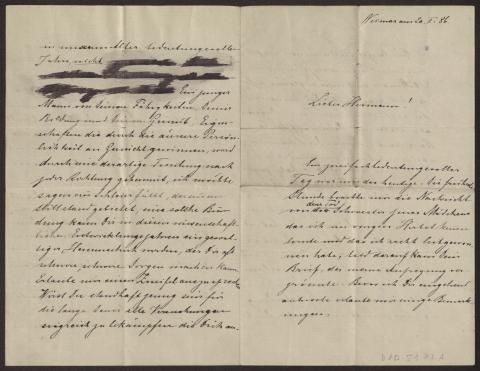 Weimar am 20. X. 86
Lieber Hermann!
Ein zweifach bedeutungsvoller
Tag war mir der heutige. Die früheste
Stunde brachte mir die Nachricht
von dem Tod der Schwester jenes Mädchens
das ich im vorigen Herbst kennen
lernte und das ich recht liebgewon-
nen habe, bald darauf kam Dein
Brief, der meine Aufregung ver-
grösserte. Bevor ich Dir eingehend
antworte erlaube mir einige Bemerk-
ungen.
in unserm Alter bedeutungsvollen
Jahre, nicht
Ein junger
Mann von Deinen Fähigkeiten, Deiner
Bildung und Deinem Gemüt, Eigen-
schaften die durch die äussere Persön-
lichkeit an Gewicht gewinnen, wird
durch eine derartige
jeder Richtung gehemmt, ich möchte
sagen ein Schleier fällt, der ihm
Stillstand gebietet, eine solche Bin-
dung kann Dir in Deinen wissenschaft-
lichen Entwicklungsjahren ein gewal-
tiges Hemmniss werden, die Dir oft
schwere, schwere Sorgen machen kann.
Erlaube mir einen Zweifel auszusprechen
Wirst Du standhaft genug sein für
die lange Dauer alle Versuchungen
siegreich zu bekämpfen die Dich an-
DPA-5173 A